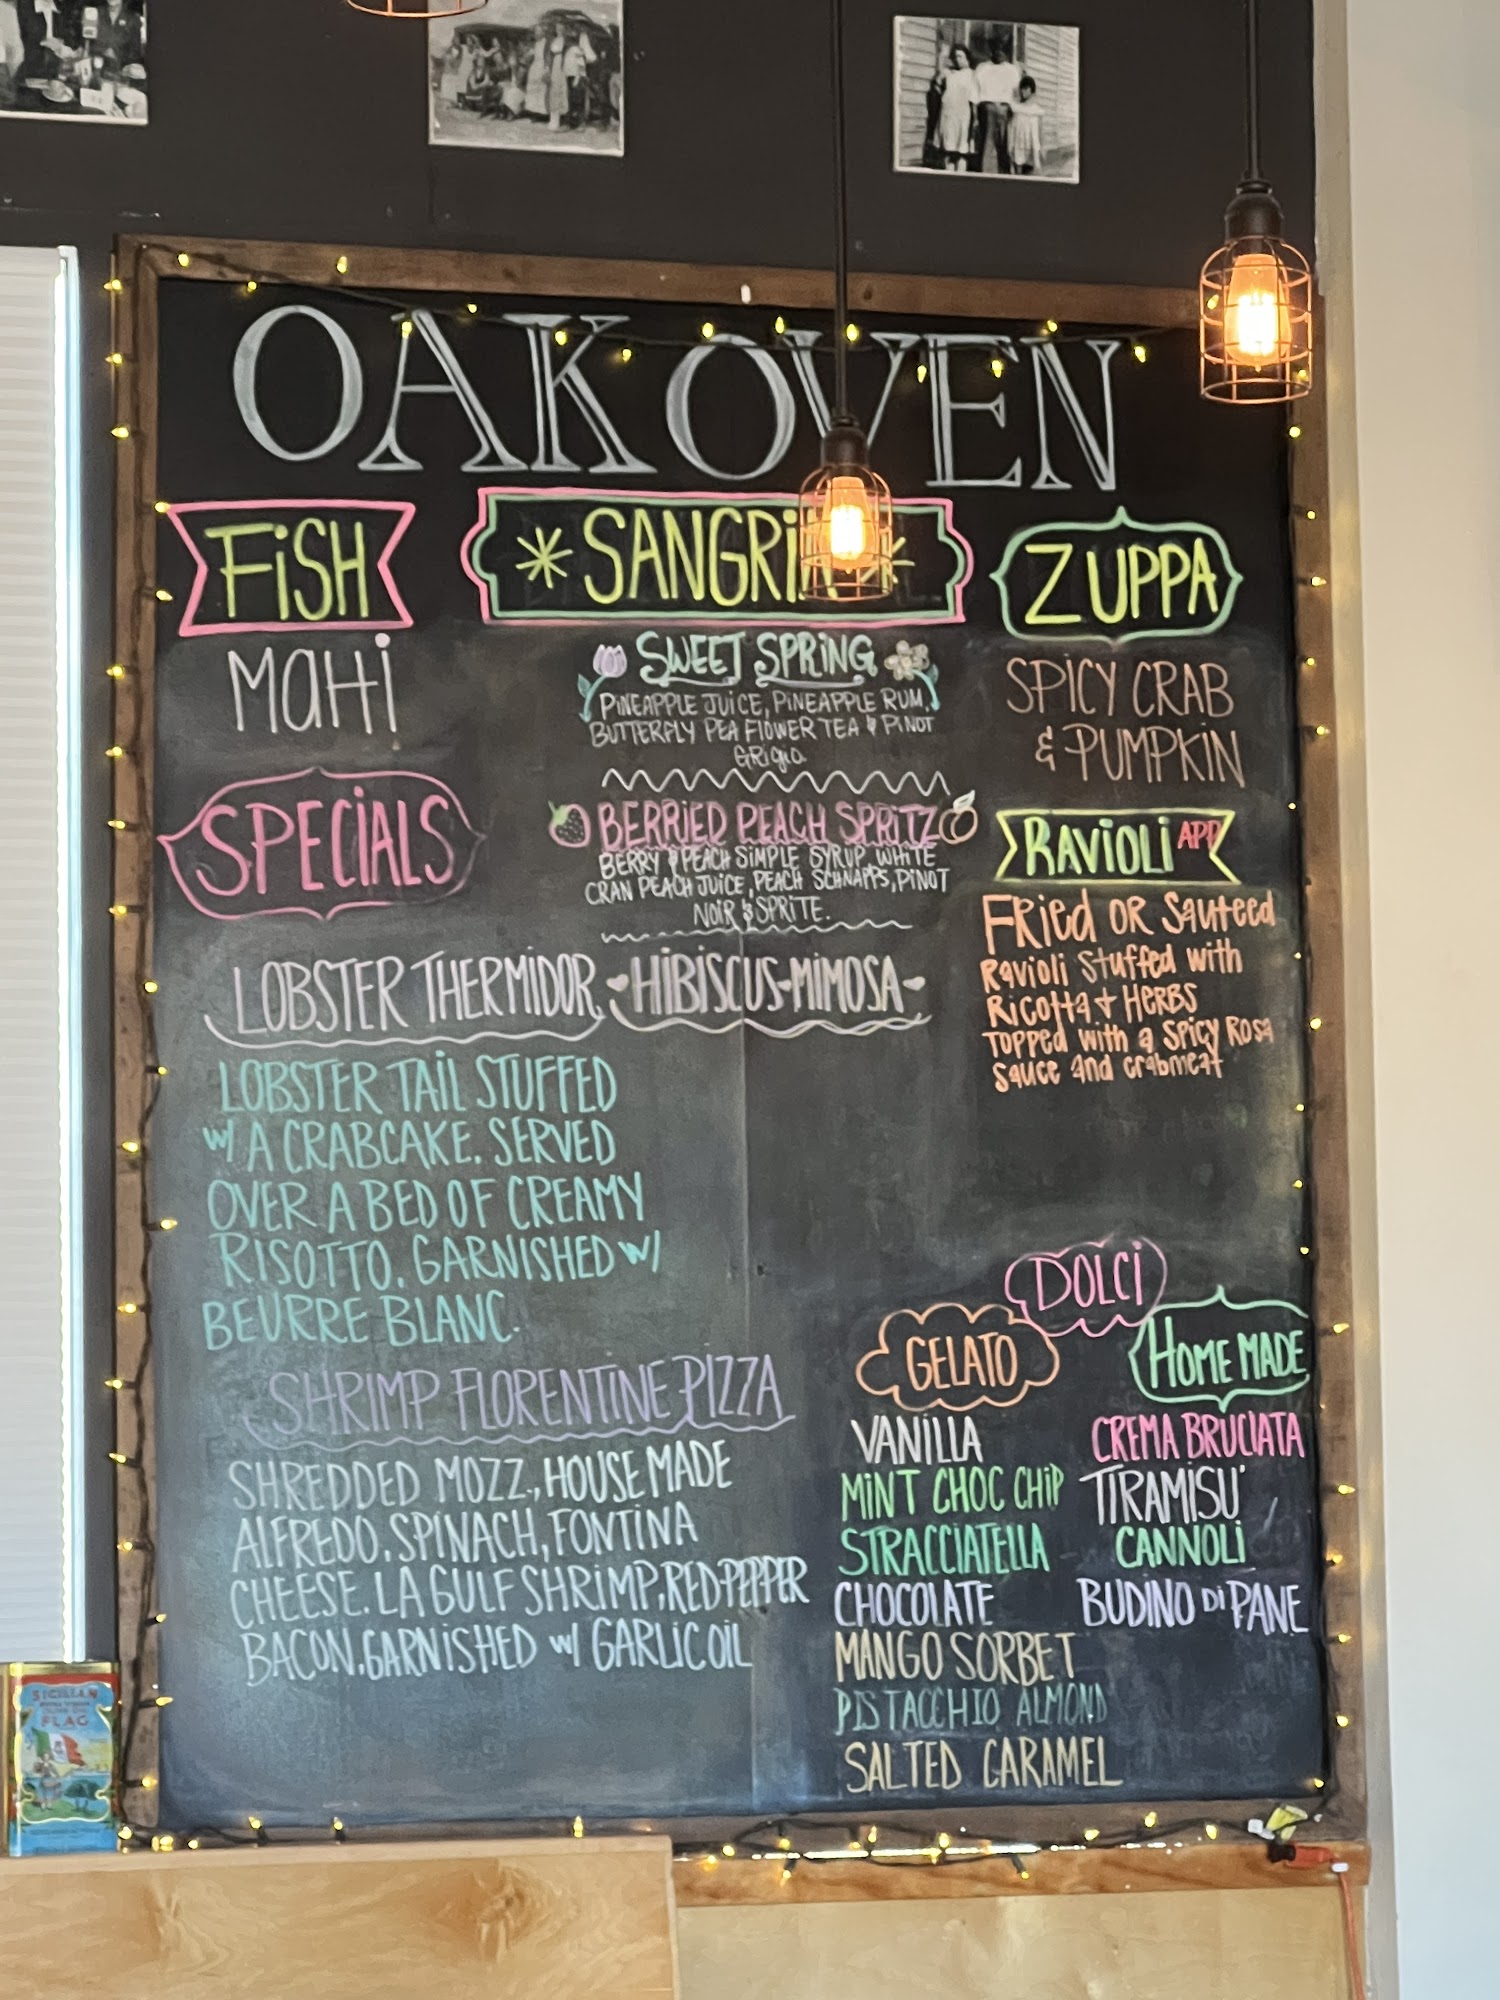 OAK OVEN
FiSH
MaHi
SPECiALS
LOBSTER THERMIDOR
LOBSTER TAIL STUFFED
w/ A CRABCAKE. SERVED
OVER A BED OF CREAMY
RISOTTO. GARNISHED w/
BEURRE BLANC.
SHRIMP FLORENTINE PIZZA
SHREDDED MOZZ., HOUSE MADE
ALFREDO, SPINACH, FONTINA
CHEESE. LA GULF SHRiMP, RED PEPPER
BACON, GARNiSHED w/ GARLIC OIL
* SANGRiA *
SWEET SPRiNG
PiNEAPPLE JUiCE, PiNEAPPLE RUM,
BUTTERFLY PEA FLOWER TEA & PiNOT
GRigio.
BERRiED PEACH SPRiTZ
BERRY & PEACH SiMPLE SYRUP, WHiTE
CRAN PEACH JUiCE, PEACH SCHNAPPS, PiNOT
NOiR & SPRiTE.
HiBiSCUS-MiMOSA
ZUPPA
SPICY CRAB
& PUMPKIN
RAViOLi APP
FRied OR Sauteed
Ravioli Stuffed with
Ricotta + HERBS
TOPPed with a SPicy Rosa
Sauce and crabmeat
DOLCi
GELATO
VANiLLA
MiNT CHOC CHiP
STRACCiATELLA
CHOCOLATE
MANGO SORBET
PISTACCHIO ALMOND
SALTED CARAMEL
HOME MADE
CREMA BRUCIATA
TIRAMISU'
CANNOLi
BUDINO Di PANE
SICILIAN
FLAG